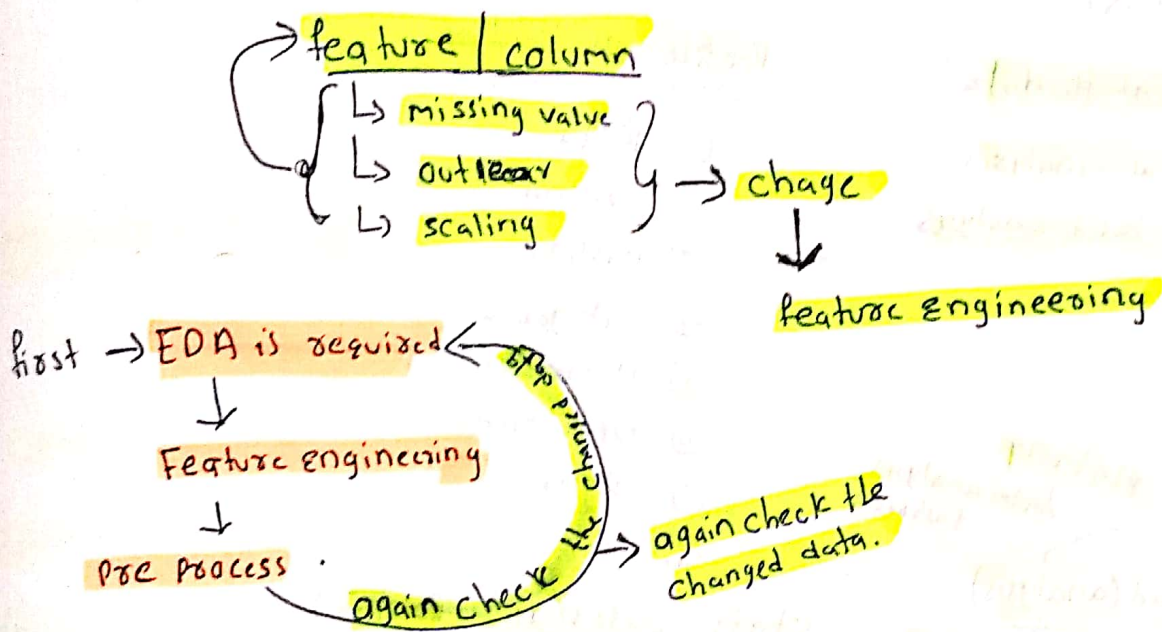 feature | column
↳ missing value
↳ outlear
↳ scaling
→ chage
feature engineering
first → EDA is required
Feature engineering
pre process .
again check the changed data
→ again check the
changed data.